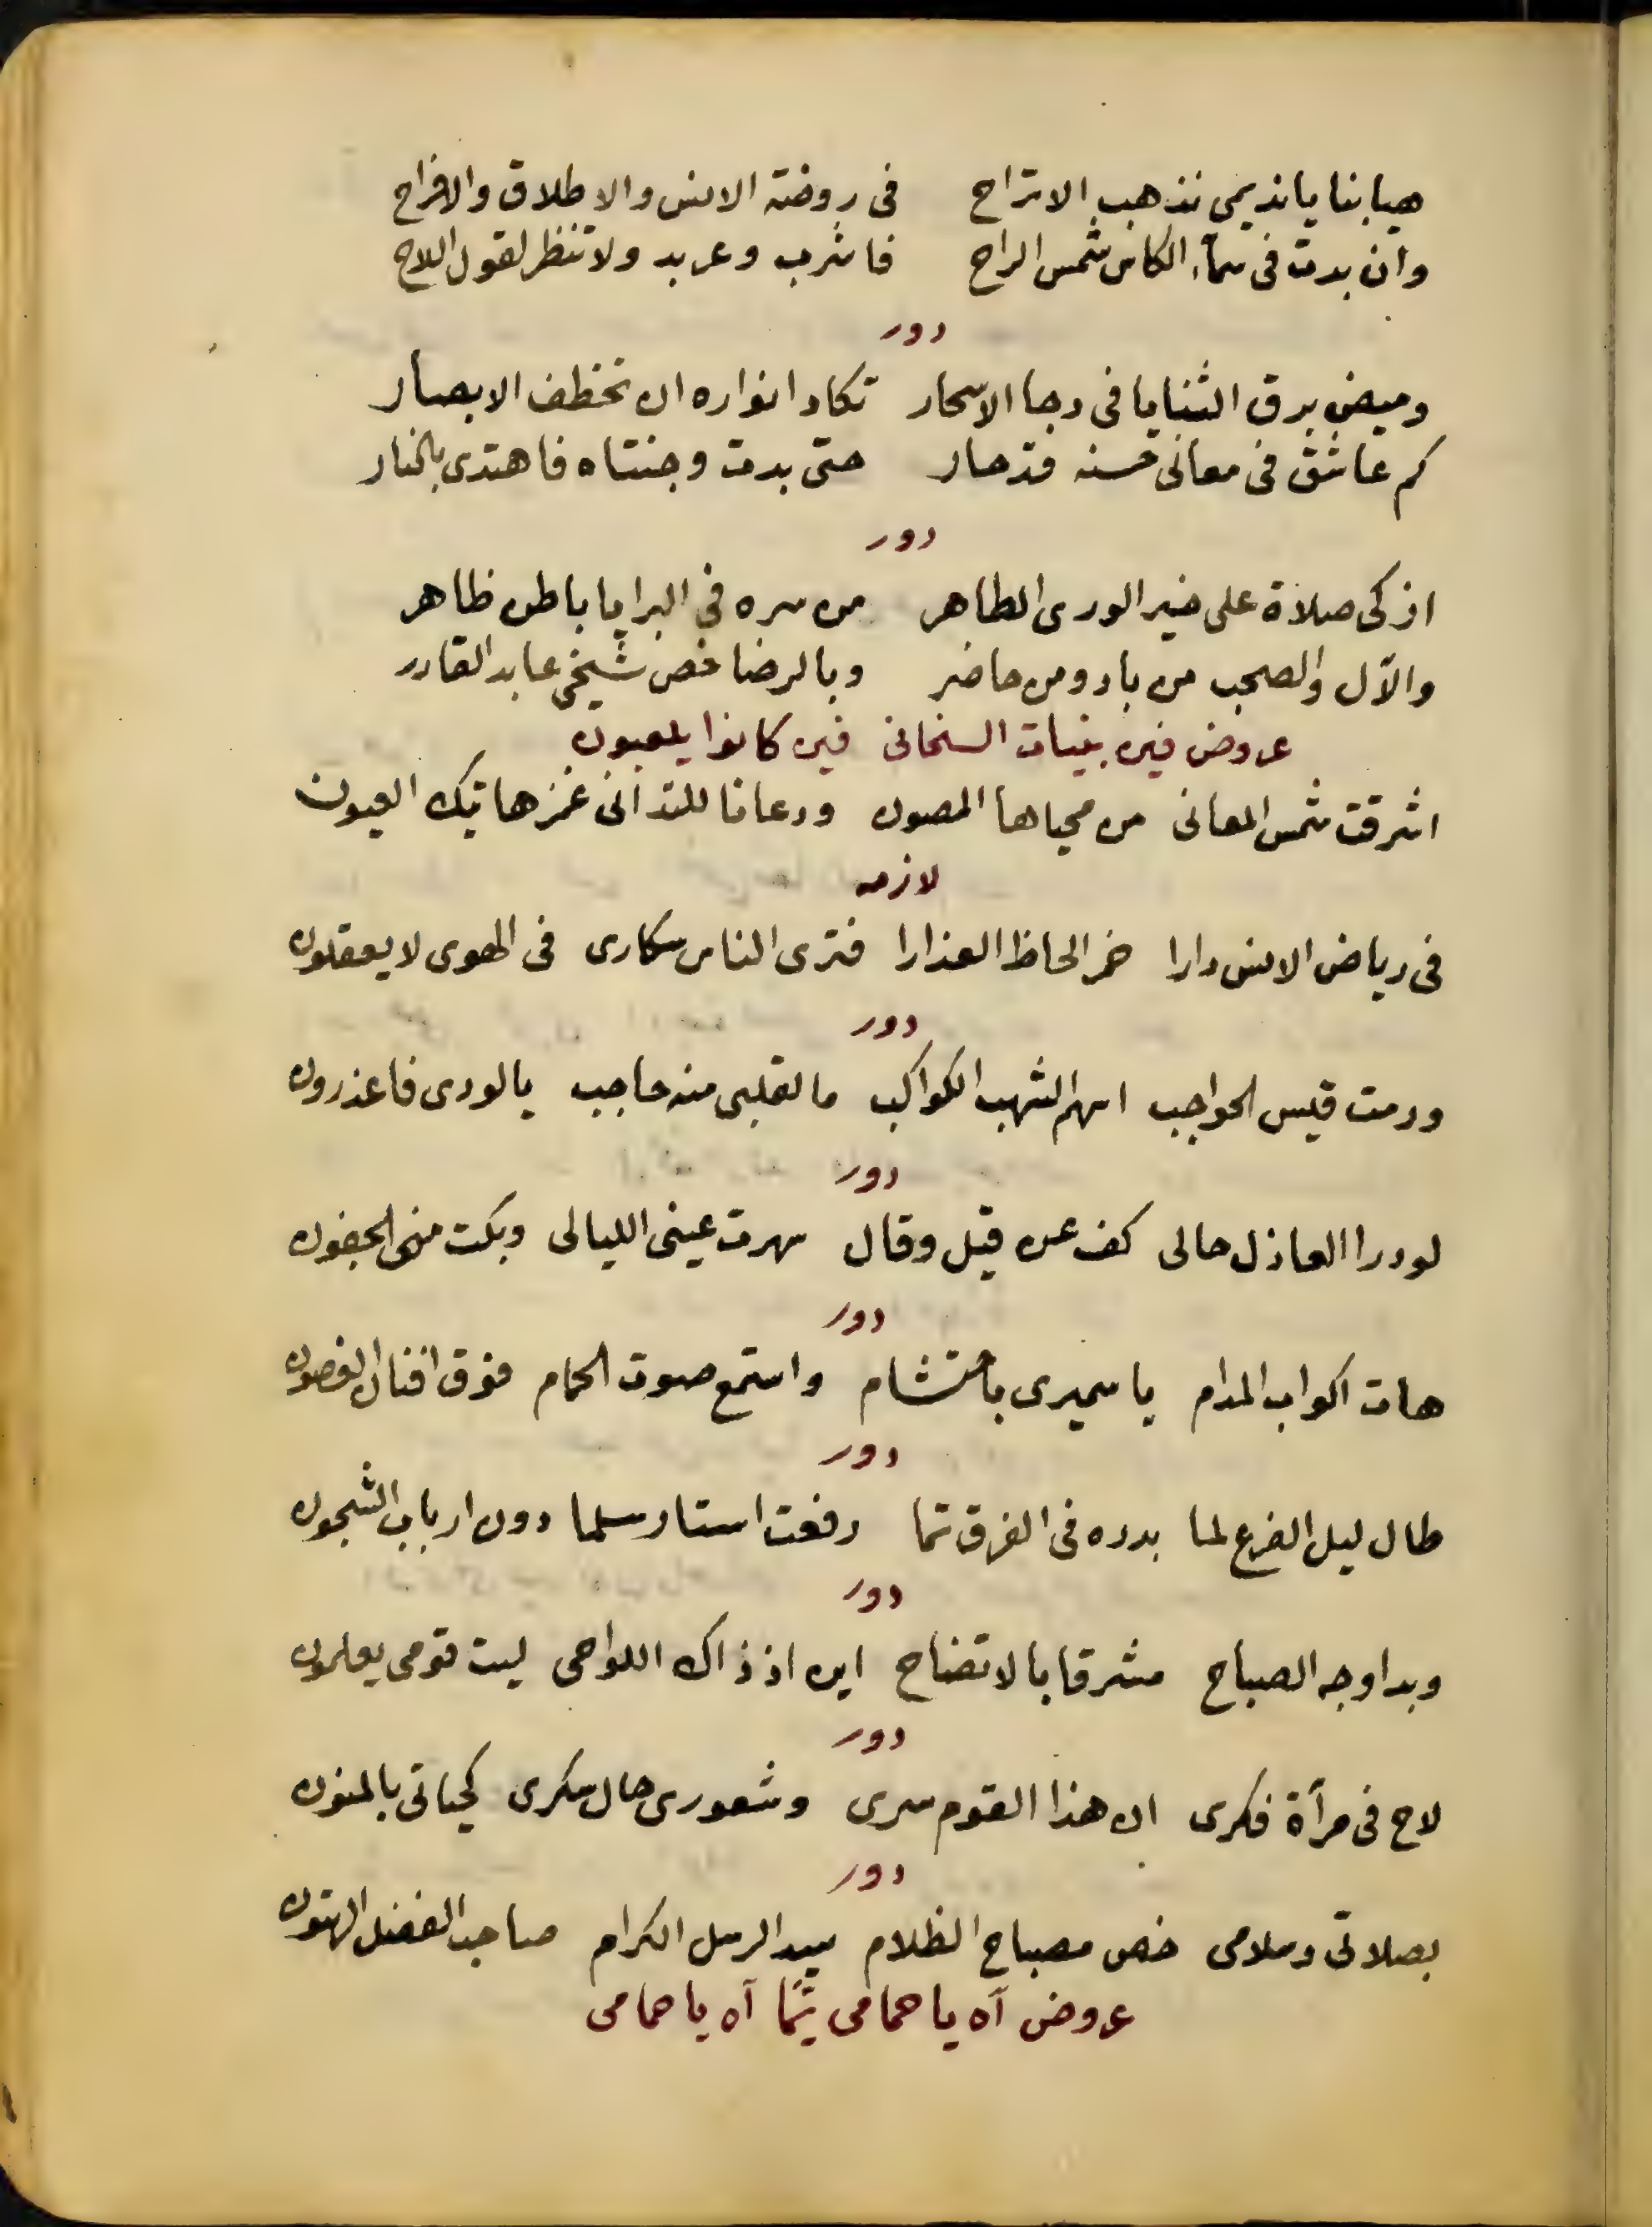 هيا بنا يا نديمي نذهب الاتراح   في روضة الانس والاطلاق والافراح
وان بدت في سماء الكاس شمس الراح   فاشرب وعربد ولا تنظر لقول اللاح
دور
وميض برق الثنايا في دجا الاسحار   تكاد انواره ان تخطف الابصار
كم عاشق في معاني حسنه قد حار   حتى بدت وجنتاه فاهتدى بالنار
دور
ازكى صلاة على خير الورى الطاهر   من سره في البرايا باطن ظاهر
والآل والصحب من باد ومن حاضر   وبالرضا خص شيخي عابد القادر
عروض فين بنيات السنحاني فين كانوا يلعبون
اشرقت شمس المعاني من محياها المصون ودعانا للتداني غمز هاتيك العيون
لازمه
في رياض الانس دارا خمر الحاظ العذارا فترى الناس سكارى في الهوى لا يعقلون
دور
ورمت قيس الحواجب اسهم الشهب الكواكب ما لقلبي منه حاجب يا لورى فاعذرون
دور
لو درا العاذل حالي كف عن قيل وقال سهرت عيني الليالي وبكت مني الجفون
دور
هات اكواب المدام يا سميري باحتشام واستمع صوت الحمام فوق افنان الغصون
دور
طال ليل الفرع لما بدره في الفرق تما رفعت استار سلما دون ارباب الشجون
دور
وبدا وجه الصباح مشرقا بالاتضاح اين اذ ذاك اللواحى ليت قومي يعلمون
دور
لاح في مرآة فكرى ان هذا القوم سرى وشعورى حال سكرى كحياتى بالمنون
دور
بصلاتى وسلامى خص مصباح الظلام سيد الرسل الكرام صاحب الفضل الهتون
عروض آه يا حمامى يمّا آه يا حمامى